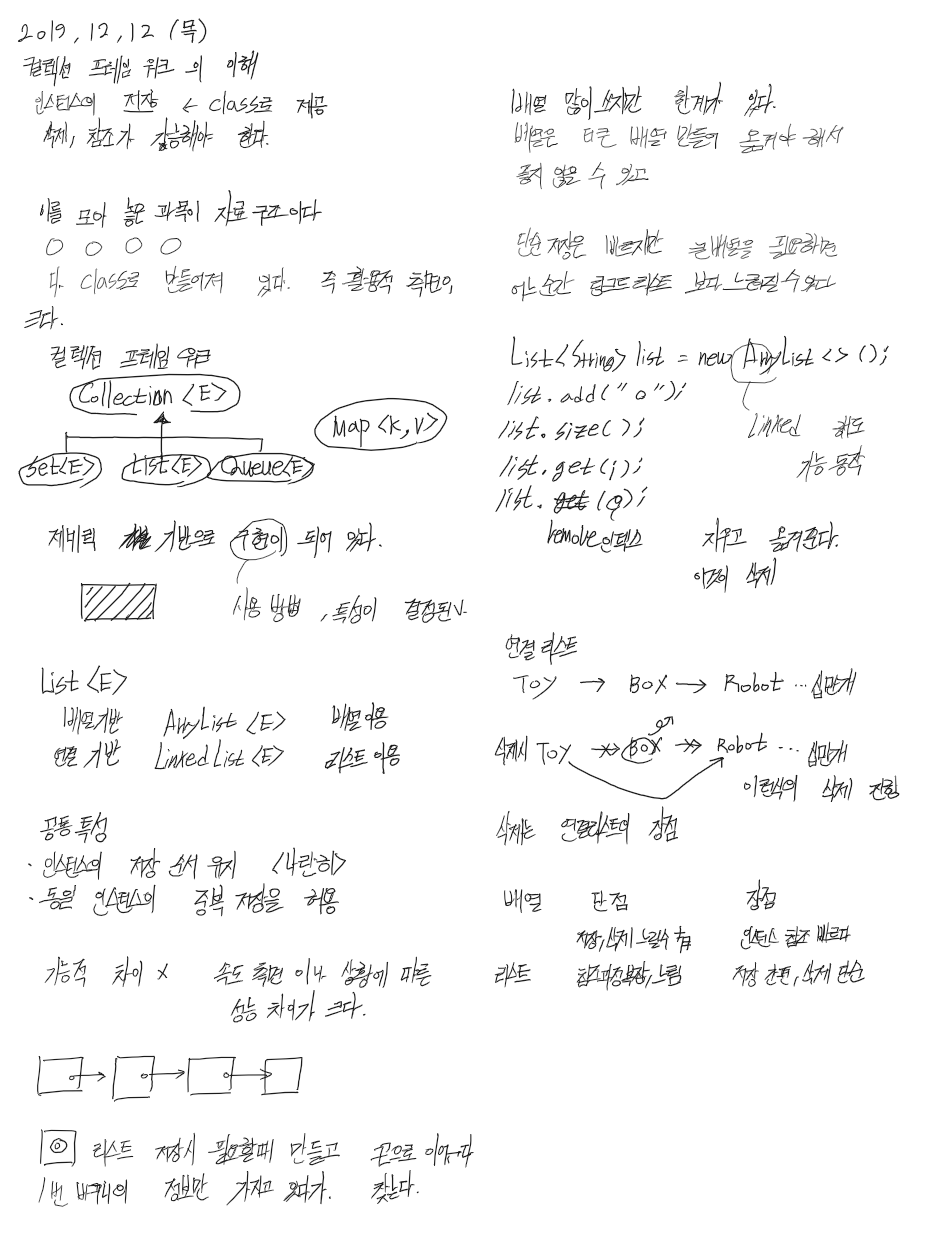 2019, 12, 12 (목)
컬렉션 프레임 워크 의 이해
인스턴스의 저장 ← class로 제공
삭제, 참조가 가능해야 한다.
이를 모아 놓은 과목이 자료 구조 이다
다 class로 만들어져 있다. 즉 활용적 측면이
크다.
컬렉션 프레임 워크
Collection <E>
Map <k, v>
Set<E> List<E> Queue<E>
제네릭 기반으로 구현이 되어 있다.
사용 방법, 특성이 결정된다.
List <E>
배열기반 ArryList <E> 배열이용
연결 기반 Linked List <E> 리스트 이용
공통 특성
· 인스턴스의 저장 순서 유지 <나란히>
· 동일 인스턴스의 중복 저장을 허용
기능적 차이 x 속도 측면 이나 상황에 따른
성능 차이가 크다.
리스트 저장시 필요할때 만들고 끈으로 이어나다
1번 바구니의 정보만 가지고 있다가. 찾는다.
배열 많이 쓰지만 한계가 있다.
배열은 더큰 배열 만들어 옮겨야 해서
좋지 않을 수 있고
단순 저장은 빠르지만 큰배열을 필요하면
어느순간 링크드리스트 보다 느려질 수 있다
List<String> list = new ArryList <> ();
list.add("o");
list.size();
list.get(i);
list. (0);
Linked 해도
가능 동작
remove인덱스 지우고 옮겨준다.
이것이 삭제
연결 리스트
Toy → BOX → Robot ... 십만개
삭제시 Toy BOX Robot ... 십만개
이런식의 삭제 진행
삭제는 연결리스트의 장점
배열 단점 장점
저장,삭제 느릴수 有 인스턴스 참조 빠르다
리스트 참조과정복잡, 느림 저장 간편, 삭제 단순